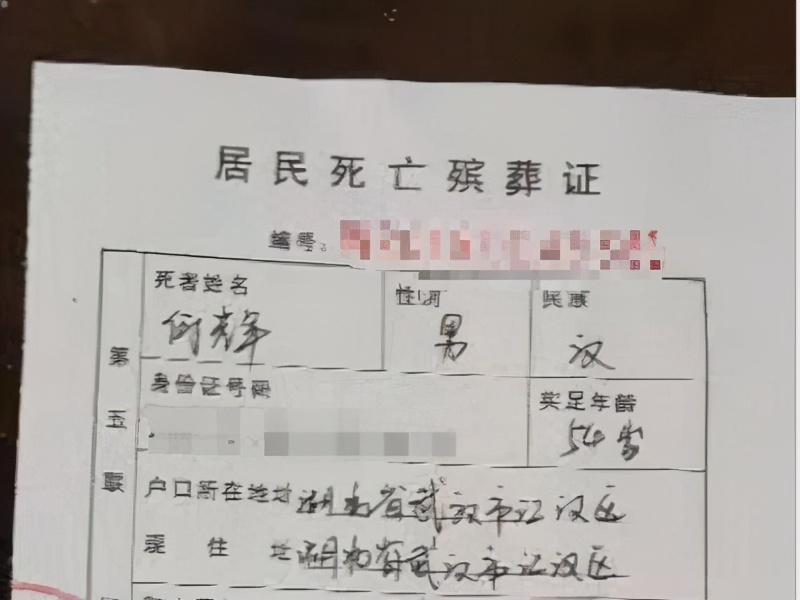 居民死亡殡葬证
编号：
死者姓名 性别 民族
何辉 男 汉
第五联
身份证号码 实足年龄
54岁
户口所在地址 湖北省武汉市江汉区
现住址 湖北省武汉市江汉区